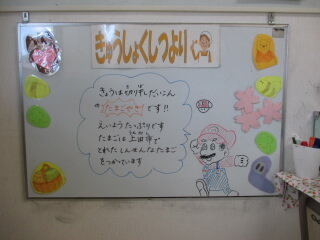 きゅうしょくしつより
きょうは切り干しだいこん
の「たまごやき」です!!
えいようたっぷりです
たまごは上田市で
とれたしんせんなたまご
をつかっています